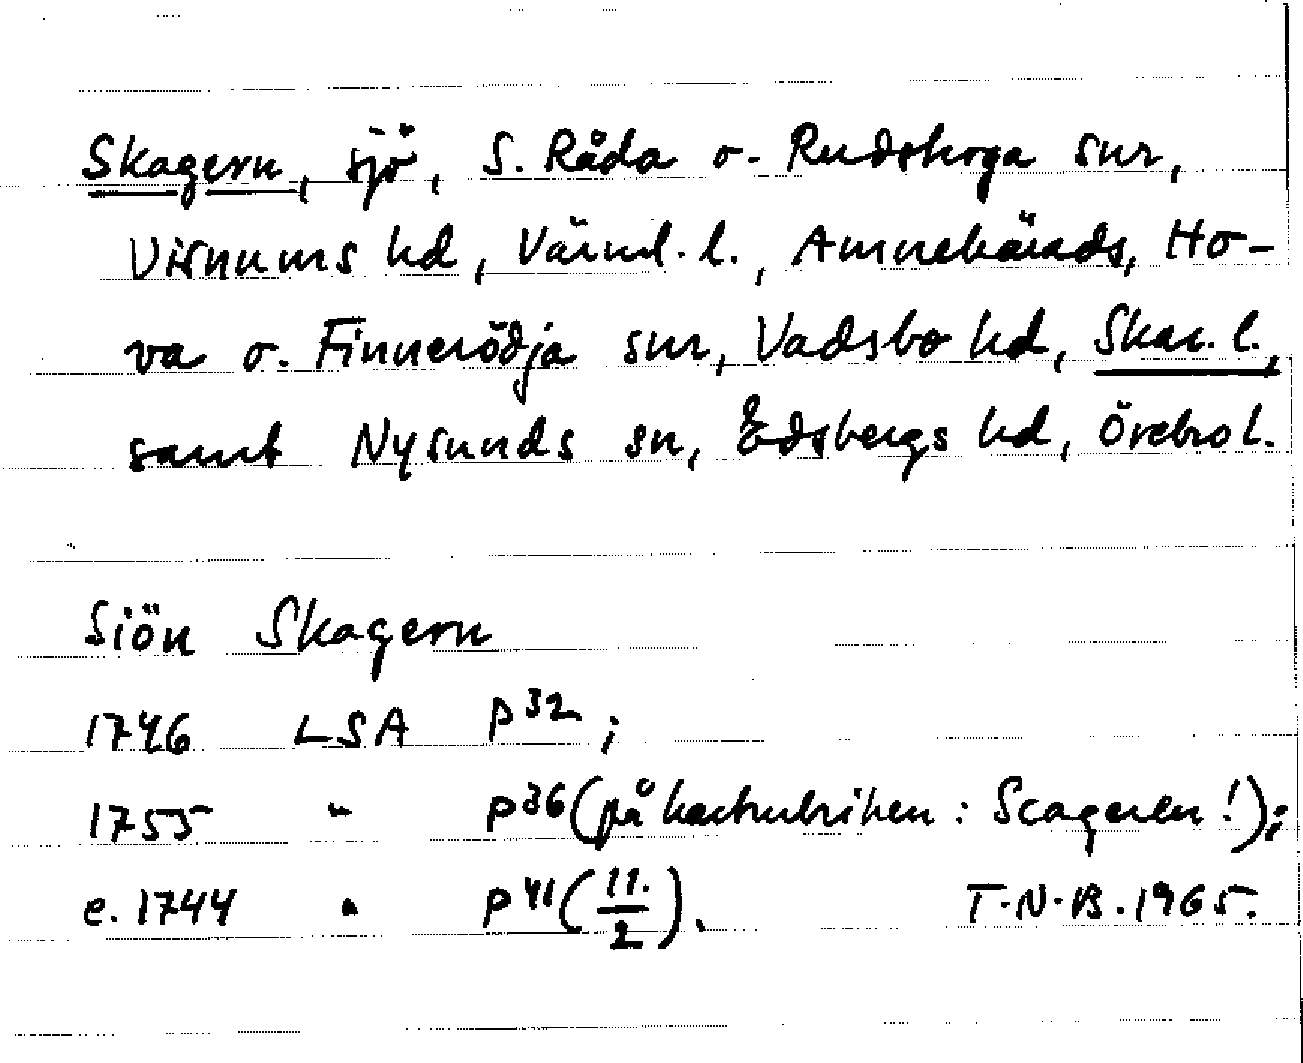 Skagern, sjö, S. Råda o. Rudskoga snr,
Visnums hd, Värml. l., Amnehärads, Ho-
va o. Finnerödja snr, Vadsbo hd, Skar. l.,
samt Nysunds sn, Edsbergs hd, Örebro l.
Siön Skagern
1746 LSA P32;
1755 " P36 (på kartrubriken: Scageren!);
e. 1744 " P41 (11./2). T.N.B. 1965.